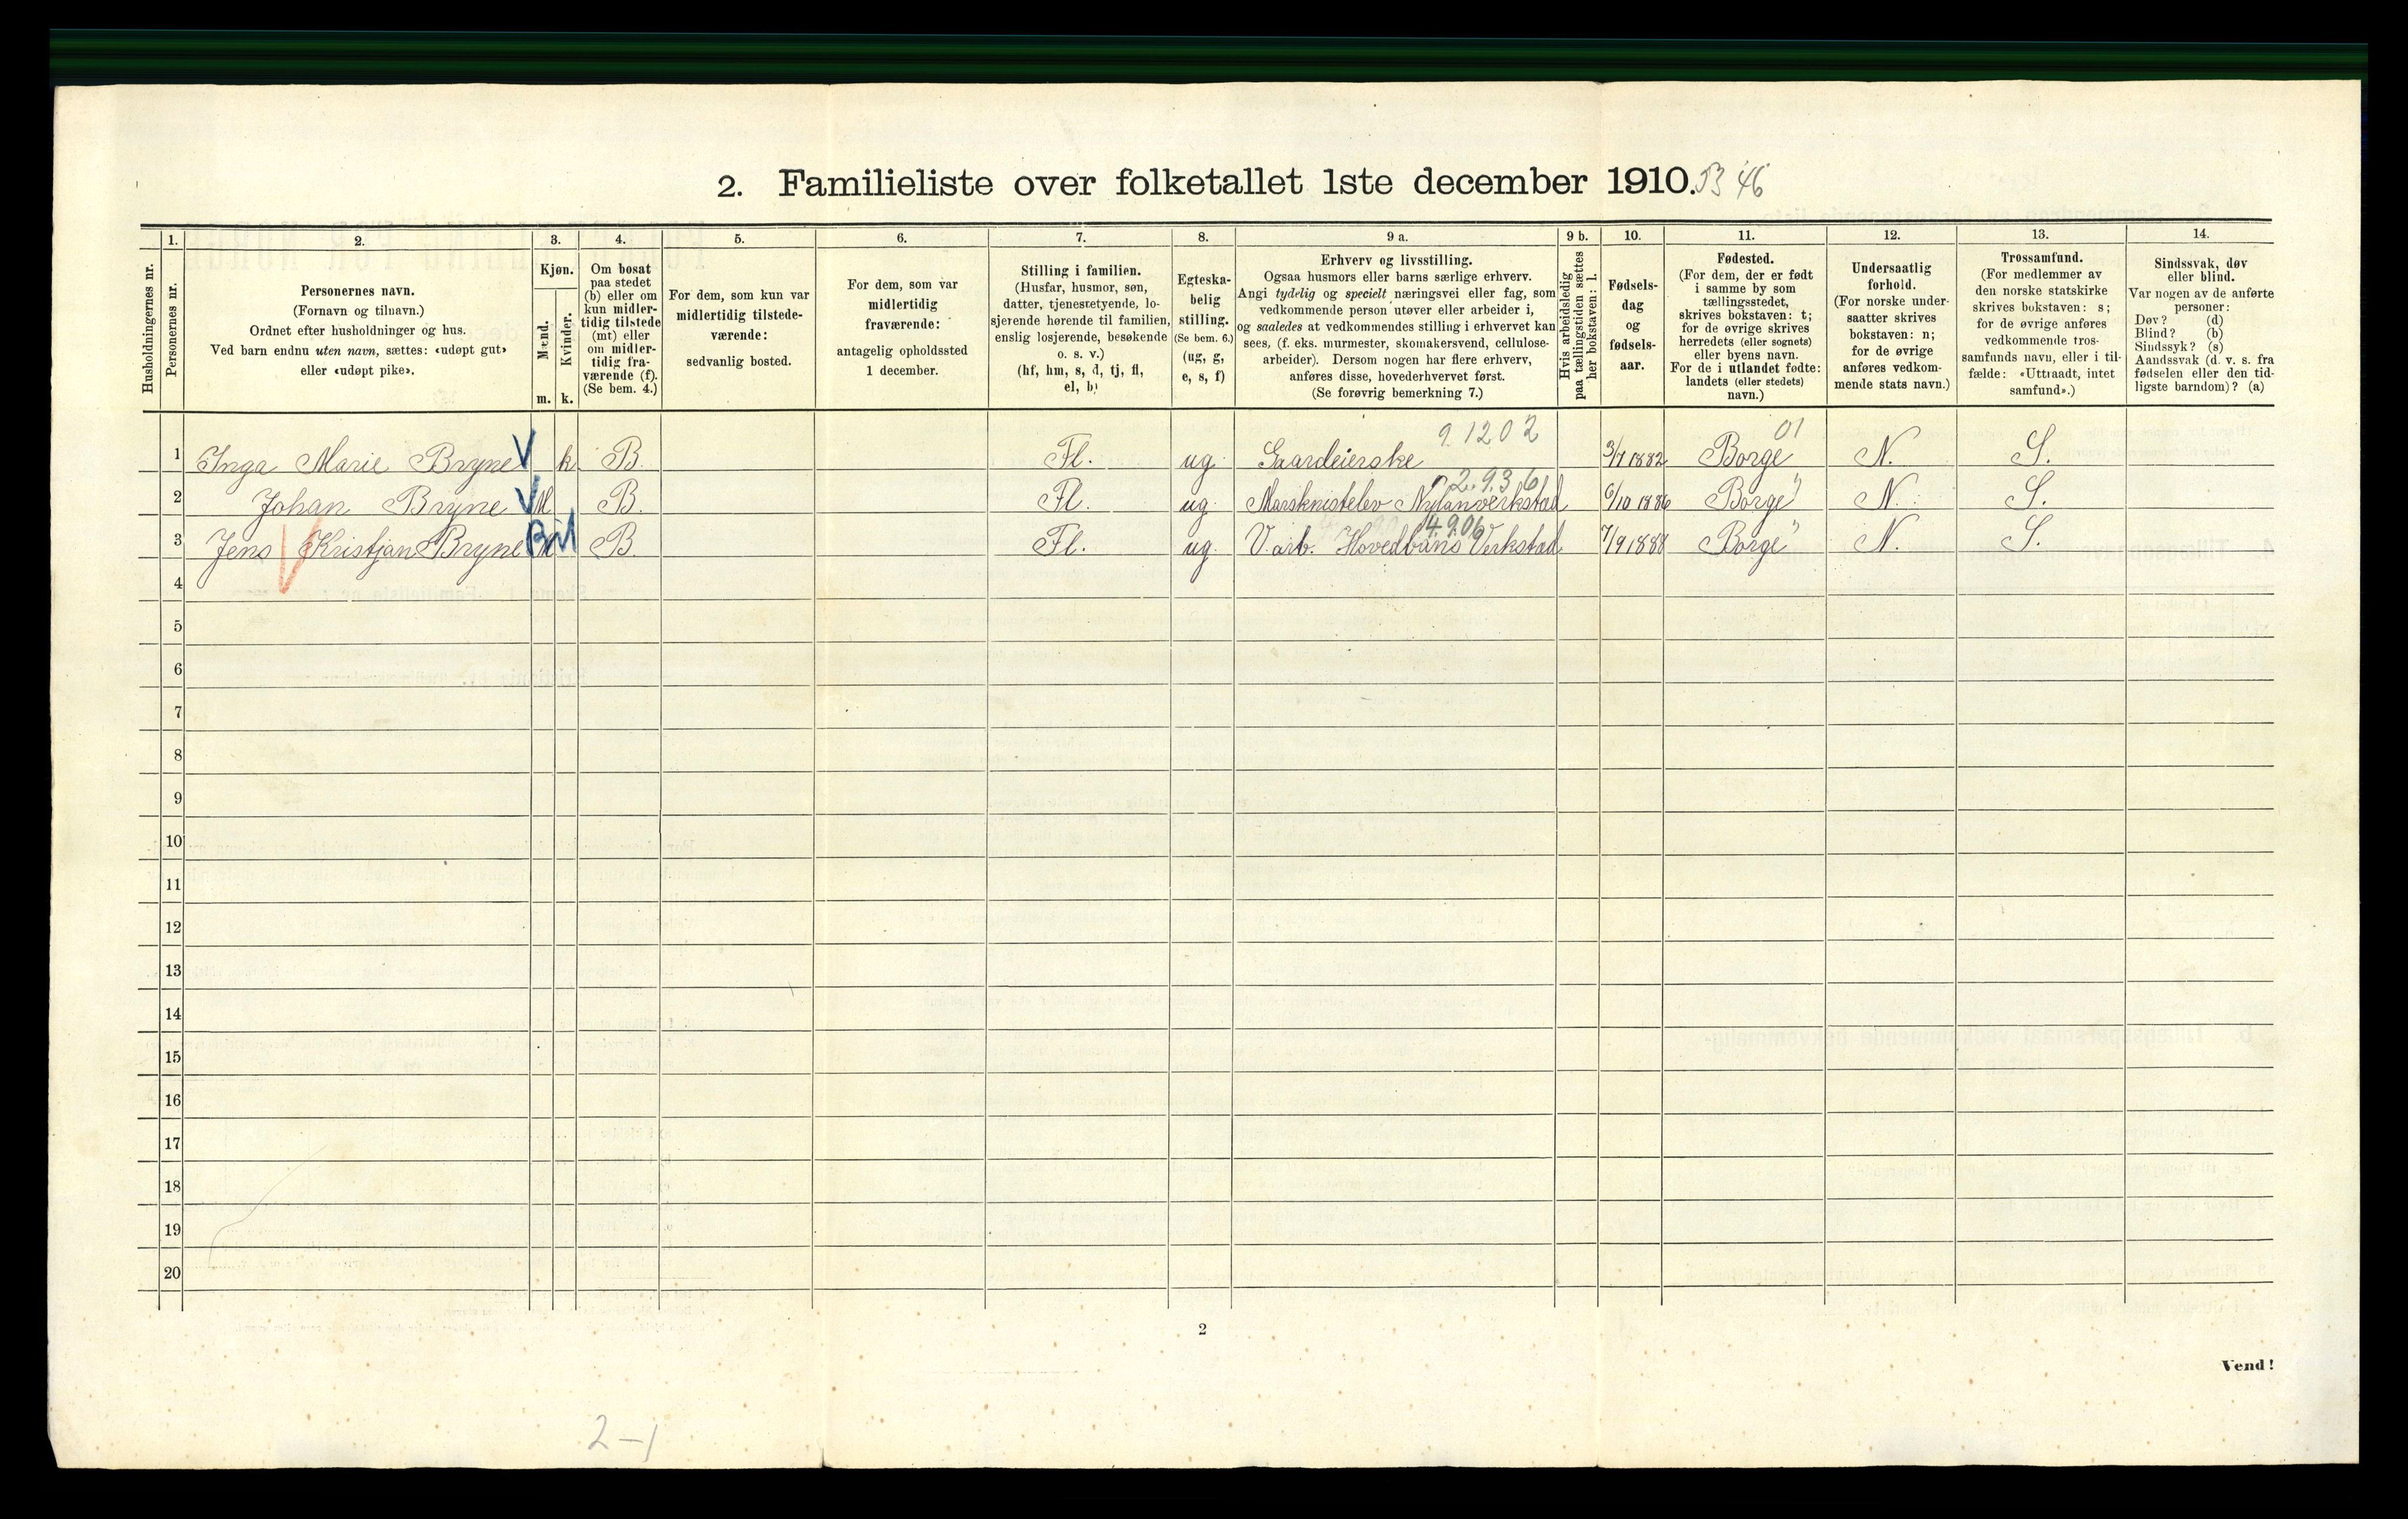 2. Familieliste over folketallet 1ste december 1910. 53 46
Husholdningernes nr.
1.
Personernes nr.
2.
Personernes navn.
(Fornavn og tilnavn.)
Ordnet efter husholdninger og hus.
Ved barn endnu uten navn, sættes: «udøpt gut»
eller «udøpt pike».
3.
Kjøn.
Mænd.
Kvinder.
m. k.
4.
Om bosat
paa stedet
(b) eller om
kun midler-
tidig tilstede
(mt) eller
om midler-
tidig fra-
værende (f).
(Se bem. 4.)
5.
For dem, som kun var
midlertidig tilstede-
værende:
sedvanlig bosted.
6.
For dem, som var
midlertidig
fraværende:
antagelig opholdssted
1 december.
7.
Stilling i familien.
(Husfar, husmor, søn,
datter, tjenestetyende, lo-
sjerende hørende til familien,
enslig losjerende, besøkende
o. s. v.)
(hf, hm, s, d, tj, fl,
el, b)
8.
Egteska-
belig
stilling.
(Se bem. 6.)
(ug, g,
e, s, f)
9 a.
Erhverv og livsstilling.
Ogsaa husmors eller barns særlige erhverv.
Angi tydelig og specielt næringsvei eller fag, som
vedkommende person utøver eller arbeider i,
og saaledes at vedkommendes stilling i erhvervet kan
sees, (f. eks. murmester, skomakersvend, cellulose-
arbeider). Dersom nogen har flere erhverv,
anføres disse, hovederhvervet først.
(Se forøvrig bemerkning 7.)
9 b.
Hvis arbeidsledig
paa tællingstiden sættes
her bokstaven: l.
10.
Fødsels-
dag
og
fødsels-
aar.
11.
Fødested.
(For dem, der er født
i samme by som
tællingsstedet,
skrives bokstaven: t;
for de øvrige skrives
herredets (eller sognets)
eller byens navn.
For de i utlandet fødte:
landets (eller stedets)
navn.)
12.
Undersaatlig
forhold.
(For norske under-
saatter skrives
bokstaven: n;
for de øvrige
anføres vedkom-
mende stats navn.)
13.
Trossamfund.
(For medlemmer av
den norske statskirke
skrives bokstaven: s;
for de øvrige anføres
vedkommende tros-
samfunds navn, eller i til-
fælde: «Uttraadt, intet
samfund».)
14.
Sindssvak, døv
eller blind.
Var nogen av de anførte
personer:
Døv? (d)
Blind? (b)
Sindssyk? (s)
Aandssvak (d. v. s. fra
fødselen eller den tid-
ligste barndom)? (a)
9.1202 01
1 Inga Marie Bryne V k B. Fl. ug. Gaardeierske 3/7 1882 Borge N. S.
2.9.36
2 Johan Bryne V M B. Fl. ug. Marsknistelev Nylanverkstad 6/10 1886 Borge " N. S.
4.9.06
3 Jens Kristjan Bryne M B. Fl. ug. V. arb. Hovedbans Verkstad 7/9 1888 Borge " N. S.
4
5
6
7
8
9
10
11
12
13
14
15
16
17
18
19
20
2
Vend!
2-1